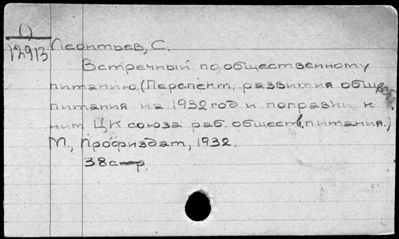 О
12913
Леонтьев, С.
Встречный по общественному
питанию. (Перспект. развития общ.
питания на 1932 год и поправки к
ним ЦК союза раб. обществ. питания.)
М., Профиздат, 1932.
38 стр.